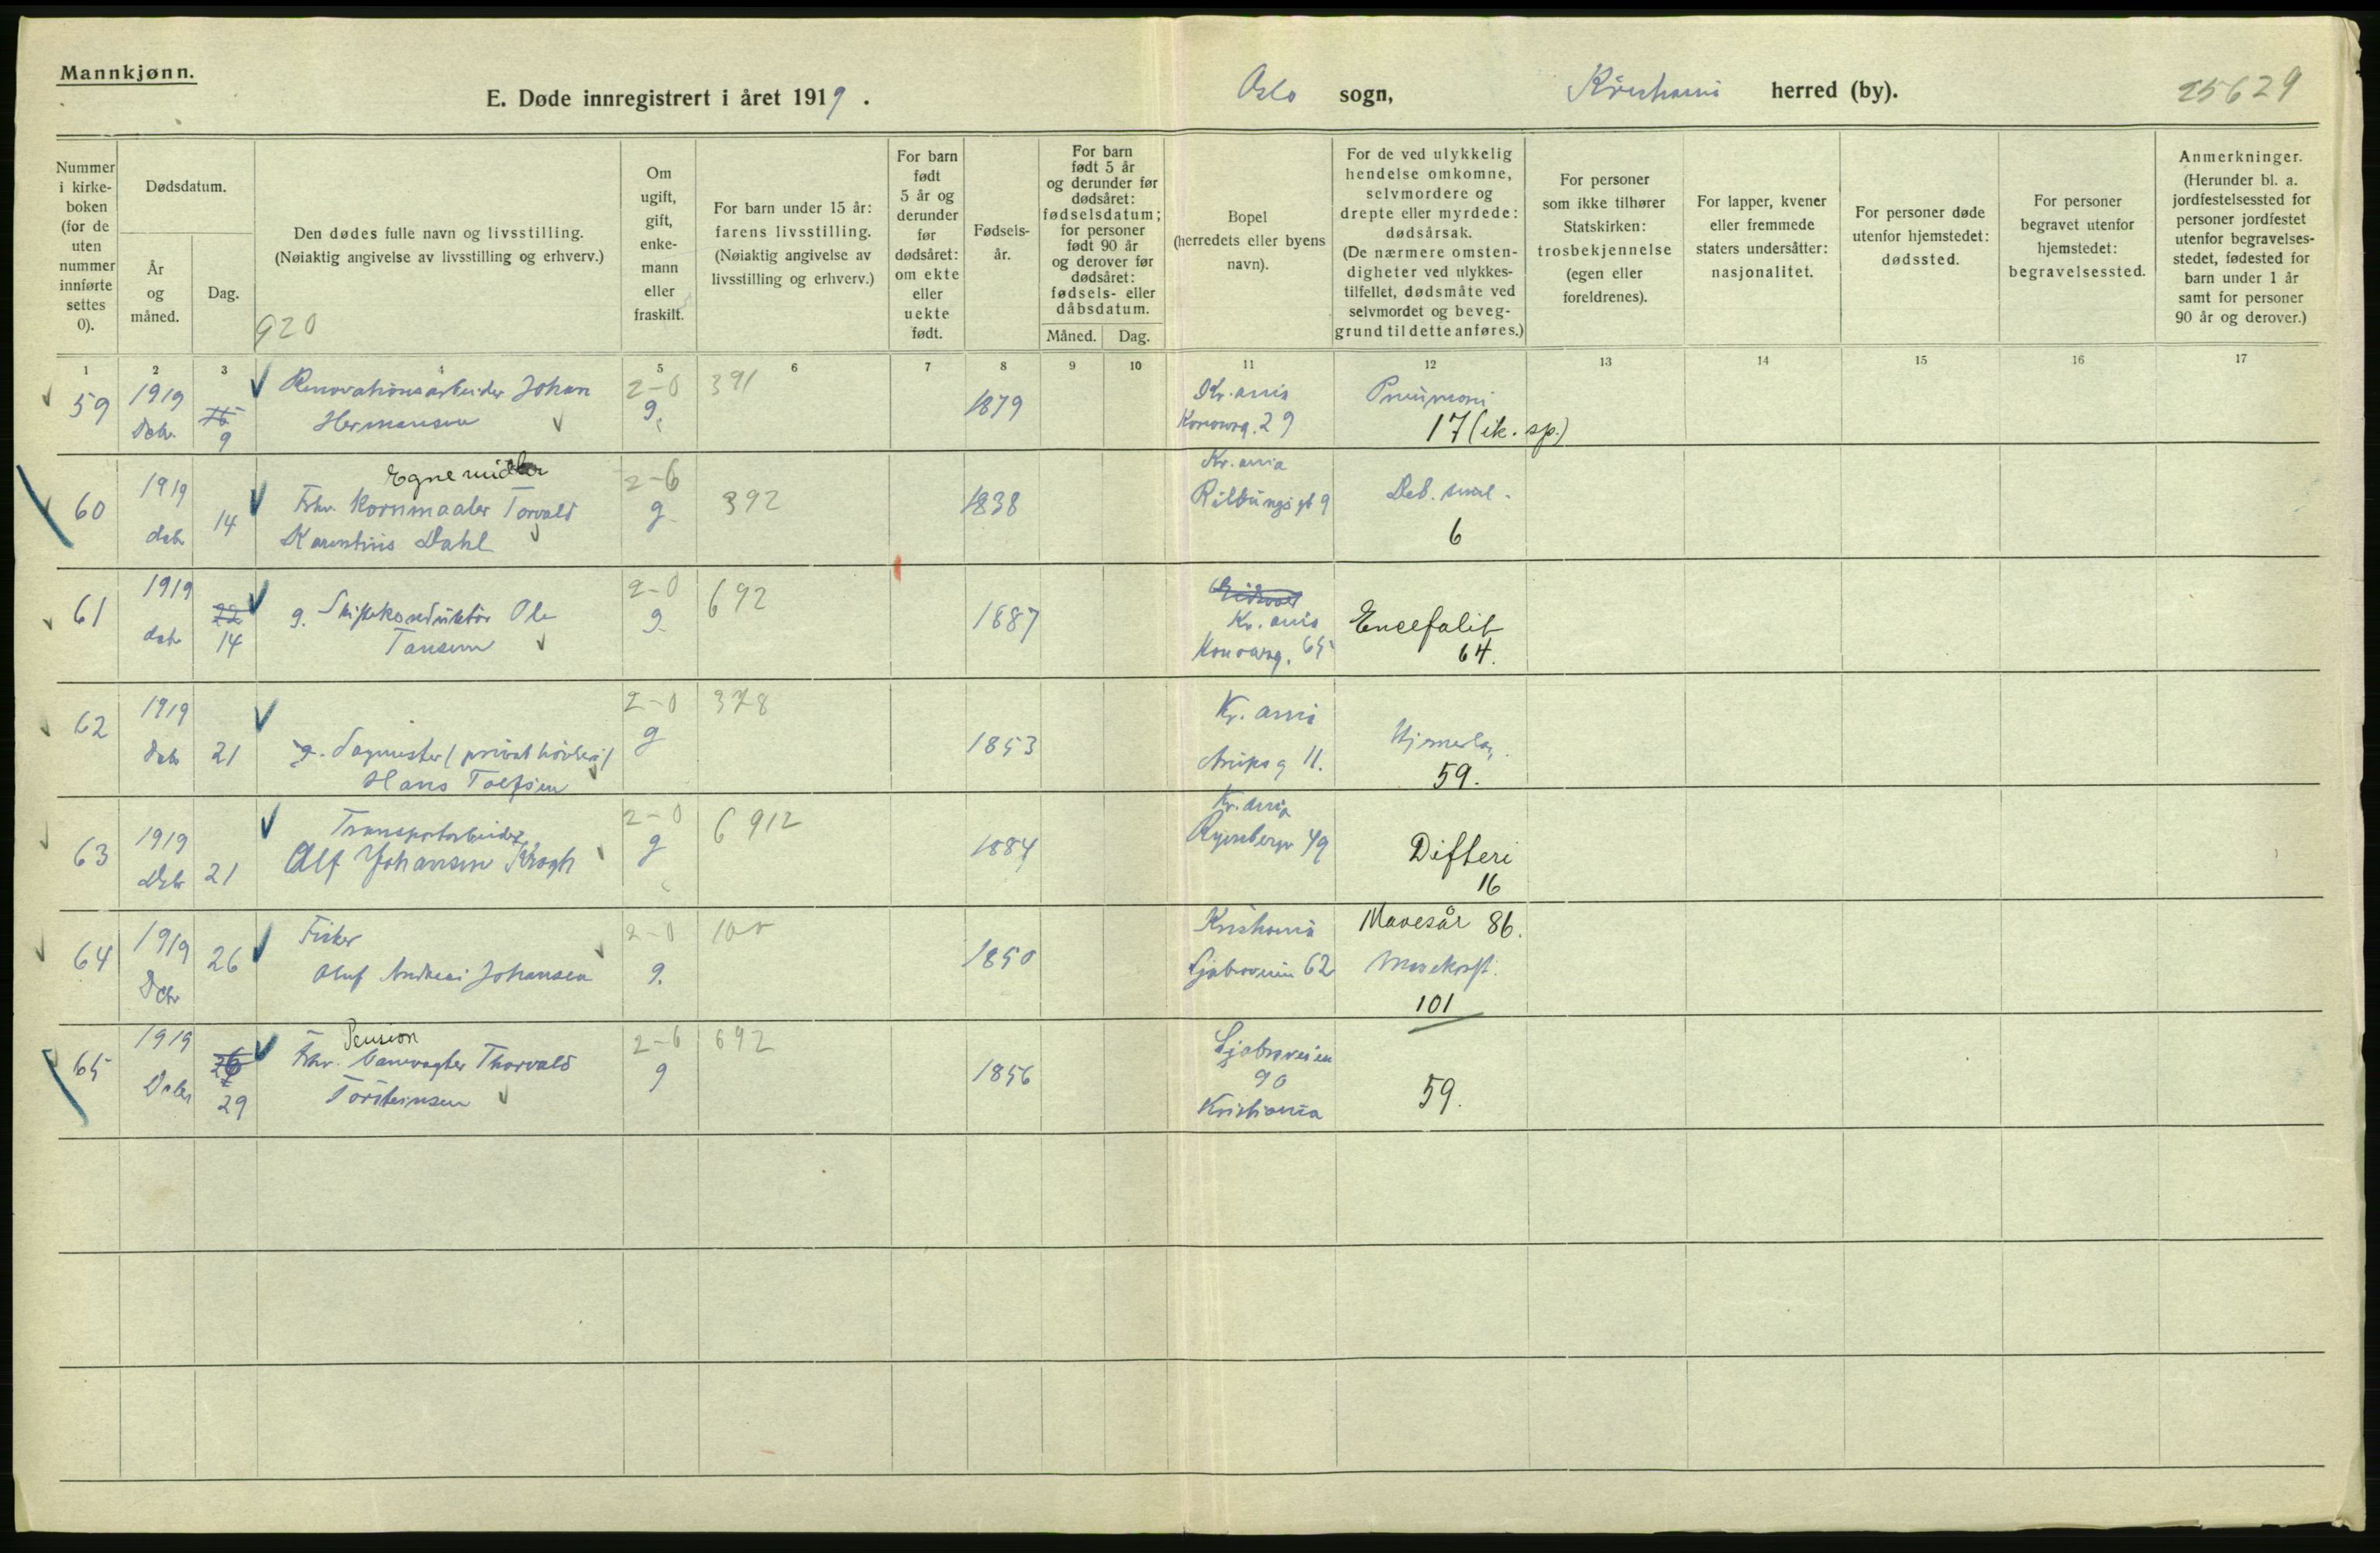 Mannkjønn.
E. Døde innregistrert i året 1919.
Oslo sogn, herred (by).
25629
Nummer i kirkeboken (for de uten nummer innførte settes 0).
Dødsdatum.
År og måned.
Dag.
Den dødes fulle navn og livsstilling.
(Nøiaktig angivelse av livsstilling og erhverv.)
920
Om ugift, gift, enkemann eller fraskilt.
For barn under 15 år: farens livsstilling.
(Nøiaktig angivelse av livsstilling og erhverv.)
For barn født 5 år og derunder før dødsåret: om ekte eller uekte født.
Fødselsår.
For barn født 5 år og derunder før dødsåret: fødselsdatum; for personer født 90 år og derover før dødsåret: fødsels- eller dåbsdatum.
Måned. Dag.
Bopel (herredets eller byens navn).
For de ved ulykkelig hendelse omkomne, selvmordere og drepte eller myrdede: dødsårsak.
(De nærmere omstendigheter ved ulykkestilfellet, dødsmåte ved selvmordet og beveggrund til dette anføres.)
For personer som ikke tilhører Statskirken: trosbekjennelse (egen eller foreldrenes).
For lapper, kvener eller fremmede staters undersåtter: nasjonalitet.
For personer døde utenfor hjemstedet: dødssted.
For personer begravet utenfor hjemstedet: begravelsessted.
Anmerkninger.
(Herunder bl. a. jordfestelsessted for personer jordfestet utenfor begravelsesstedet, fødested for barn under 1 år samt for personer 90 år og derover.)
1 2 3 4 5 6 7 8 9 10 11 12 13 14 15 16 17
59 1919 Dcbr. 9 Renovationsarbeider Johan Hermansen 2-0 g. 391 1879 Kr.ania Konowsg. 29 Pneumoni 17 (ik. sp.)
60 1919 dcbr 14 Egne midler Fhv. Kornmaaler Torvald Dahl 2-6 g 392 1838 Kr.ania 9 Deb. senil. 6
61 1919 dcbr 14 g. Ole 2-0 g 692 1887 Kr.ania Konowsg. 65 Encefalit 64.
62 1919 dcbr 21 g. Sagmester (privat høvleri) Hans 2-0 g 378 1853 Kr.ania 11. 59.
63 1919 Dcbr 21 Transportarbeider Alf Johansen Krogh 2-0 g 6912 1884 Kr.ania 49 Difteri 16
64 1919 Dcbr 26 Fisker Oluf Andreas Johansen 2-0 g. 1850 Kristiania Ljabroveien 62 Mavesår 86. Mavekræft. 101
65 1919 Dcbr 29 Pension Fhv. Banevogter Thorvald Torsteinsen 2-6 g 692 1856 Ljabroveien 90 Kristiania 59.